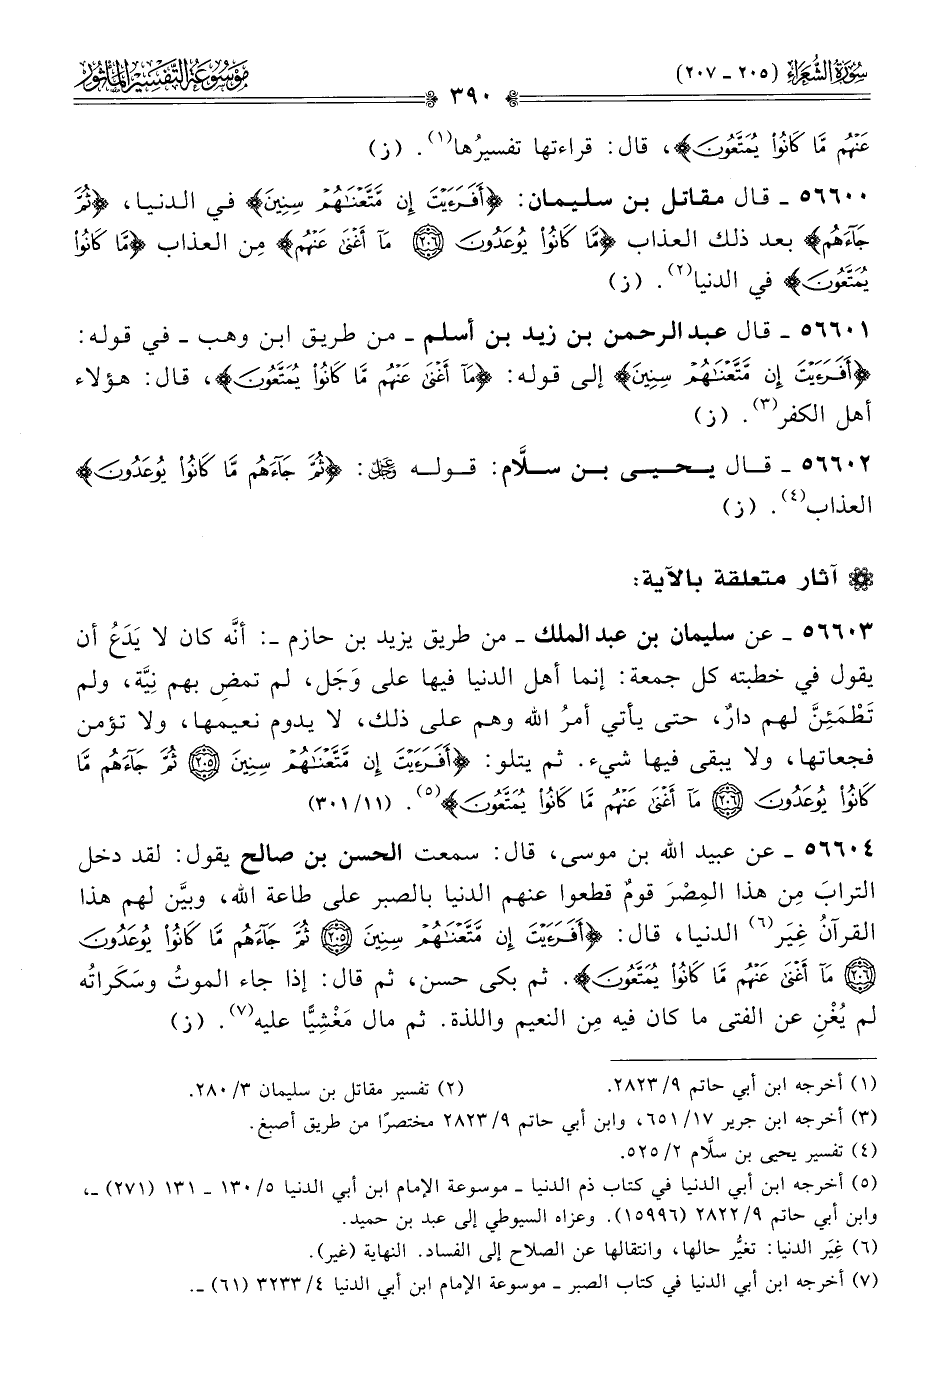 سُورَةُ الشُّعَرَاءِ (٢٠٥ - ٢٠٧)
٣٩٠
مَوْسُوعَةُ التَّفْسِيرِ الْمَأْثُورِ
عَنْهُم مَّا كَانُوا۟ يُمَتَّعُونَ﴾، قال: قراءتها تفسيرُها(١). (ز)
٥٦٦٠٠ - قال مقاتل بن سليمان: ﴿أَفَرَءَيْتَ إِن مَّتَّعْنَٰهُمْ سِنِينَ﴾ في الدنيا، ﴿ثُمَّ
جَآءَهُم﴾ بعد ذلك العذاب ﴿مَّا كَانُوا۟ يُوعَدُونَ ۝٢٠٦ مَآ أَغْنَىٰ عَنْهُم﴾ مِن العذاب ﴿مَّا كَانُوا۟
يُمَتَّعُونَ﴾ في الدنيا(٢). (ز)
٥٦٦٠١ - قال عبد الرحمن بن زيد بن أسلم - من طريق ابن وهب - في قوله:
﴿أَفَرَءَيْتَ إِن مَّتَّعْنَٰهُمْ سِنِينَ﴾ إلى قوله: ﴿مَآ أَغْنَىٰ عَنْهُم مَّا كَانُوا۟ يُمَتَّعُونَ﴾، قال: هؤلاء
أهل الكفر(٣). (ز)
٥٦٦٠٢ - قال يحيى بن سلَّام: قوله ﷿: ﴿ثُمَّ جَآءَهُم مَّا كَانُوا۟ يُوعَدُونَ﴾
العذاب(٤). (ز)
آثار متعلقة بالآية:
٥٦٦٠٣ - عن سليمان بن عبد الملك - من طريق يزيد بن حازم -: أنَّه كان لا يَدَعُ أن
يقول في خطبته كل جمعة: إنما أهل الدنيا فيها على وَجَل، لم تمضِ بهم نِيَّة، ولم
تَطْمَئِنَّ لهم دارٌ، حتى يأتي أمرُ الله وهم على ذلك، لا يدوم نعيمها، ولا تؤمن
فجعاتها، ولا يبقى فيها شيء. ثم يتلو: ﴿أَفَرَءَيْتَ إِن مَّتَّعْنَٰهُمْ سِنِينَ ۝٢٠٥ ثُمَّ جَآءَهُم مَّا
كَانُوا۟ يُوعَدُونَ ۝٢٠٦ مَآ أَغْنَىٰ عَنْهُم مَّا كَانُوا۟ يُمَتَّعُونَ﴾(٥). (٣٠١/١١)
٥٦٦٠٤ - عن عبيد الله بن موسى، قال: سمعت الحسن بن صالح يقول: لقد دخل
الترابَ مِن هذا المِصْرَ قومٌ قطعوا عنهم الدنيا بالصبر على طاعة الله، وبيَّن لهم هذا
القرآنُ غِيَر(٦) الدنيا، قال: ﴿أَفَرَءَيْتَ إِن مَّتَّعْنَٰهُمْ سِنِينَ ۝٢٠٥ ثُمَّ جَآءَهُم مَّا كَانُوا۟ يُوعَدُونَ
۝٢٠٦ مَآ أَغْنَىٰ عَنْهُم مَّا كَانُوا۟ يُمَتَّعُونَ﴾. ثم بكى حسن، ثم قال: إذا جاء الموتُ وسَكَراتُه
لم يُغْنِ عن الفتى ما كان فيه مِن النعيم واللذة. ثم مال مَغْشِيًّا عليه(٧). (ز)
(١) أخرجه ابن أبي حاتم ٢٨٢٣/٩. (٢) تفسير مقاتل بن سليمان ٢٨٠/٣.
(٣) أخرجه ابن جرير ٦٥١/١٧، وابن أبي حاتم ٢٨٢٣/٩ مختصرًا من طريق أصبغ.
(٤) تفسير يحيى بن سلَّام ٥٢٥/٢.
(٥) أخرجه ابن أبي الدنيا في كتاب ذم الدنيا - موسوعة الإمام ابن أبي الدنيا ١٣٠/٥ - ١٣١ (٢٧١) -،
وابن أبي حاتم ٢٨٢٢/٩ (١٥٩٩٦). وعزاه السيوطي إلى عبد بن حميد.
(٦) غِيَر الدنيا: تغيُّر حالها، وانتقالها عن الصلاح إلى الفساد. النهاية (غير).
(٧) أخرجه ابن أبي الدنيا في كتاب الصبر - موسوعة الإمام ابن أبي الدنيا ٣٢٣٣/٤ (٦١) -.